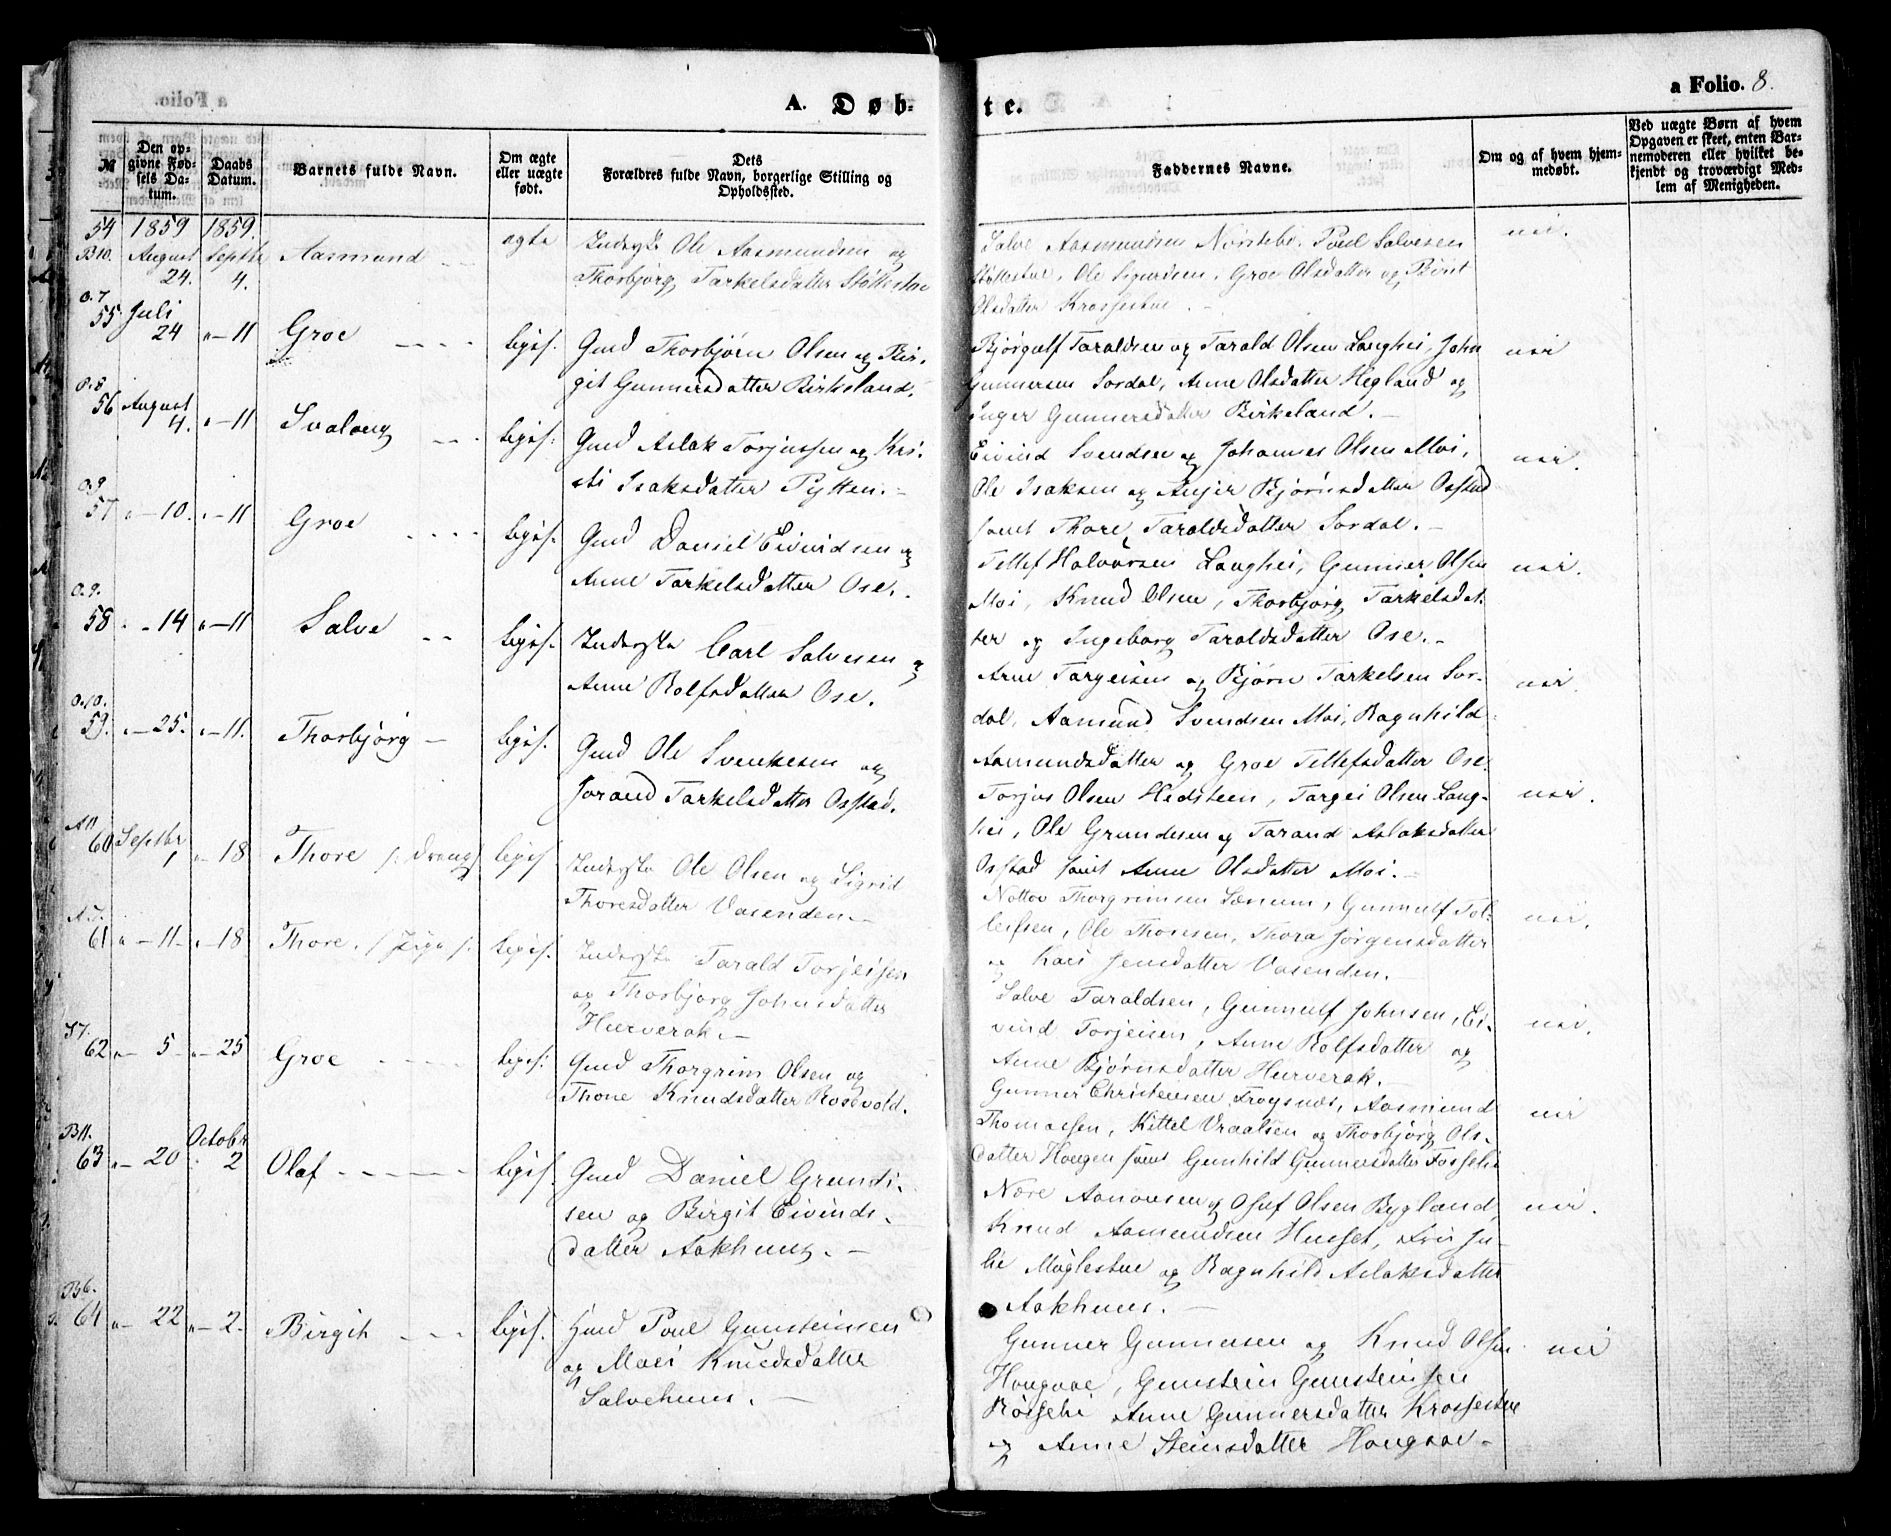 A. Døb-
te.
a Folio. 8.
№
Den op-
givne Fød-
sels Da-
tum.
Daabs
Datum.
Barnets fulde Navn.
Om ægte
eller uægte
født.
Dets
Forældres fulde Navn, borgerlige Stilling og
Opholdssted.
Faddernes Navne.
Om og af hvem hjem-
medøbt.
Ved uægte Børn af hvem
Opgaven er skeet, enten Bar-
nemoderen eller hvilket be-
kjendt og troværdigt Med-
lem af Menigheden.
54 1859 1859.
B10. August 24. Septbr 4. Aasmund ægte
Inderste Ole Aasmundsen og
Thorbjørg Tarkelsdatter Støttestøe
Salve Aasmundsen Nordstebø, Poul Salvesen
Støttestøe, Ole Sigurdsen, Groe Olsdatter og Berit
Olsdatter Krossestøe. -
nei.
O.7
55 Juli 24 " - 11 Groe liges.
Gmd Thorbjørn Olsen og Bir-
git Gunnersdatter Birkeland.
Bjørgulf Taraldsen og Tarald Olsen Langhei, John
Gunnersen Sordal, Anne Olsdatter Hegland og
Inger Gunnersdatter Birkeland. -
nei
O.8
56 August 4. " - 11 Svalaug ligès.
Gmd Aslak Torjussen og Kri-
sti Isaksdatter Pytten. -
Eivind Svendsen og Johannes Olsen Moi,
Ole Isaksen og Anjer Bjørnsdatter Osstad
samt Thore Taraldsdatter Sordal. -
nei.
O.9
57 " - 10. " - 11 Groe ligès.
Gmd Daniel Eivindsen og
Anne Tarkelsdatter Ose. -
Tellef Halvorsen Langhei, Gunner Olsen
Moi, Knud Olsen, Thorbjørg Tarkelsdat-
ter og Ingeborg Taraldsdatter Ose. -
nei.
O.9.
58 " - 14 " - 11 Salve ligès.
Inderste Carl Salvesen og
Anne Rolfsdatter Ose.
Arne Targeisen og Bjørn Tarkelsen Sor-
dal, Aamund Svendsen Moi, Ragnhild
Aamundsdatter og Groe Tellefsdatter Ose.
nei.
O.10.
59. " - 25. " - 11. Thorbjørg - ligès.
Gmd Ole Svenkesen og
Jorand Tarkelsdatter Osstad.
Torjus Olsen Hedsteen, Targei Olsen Lang-
hei, Ole Grundesen og Tarand Aslaksdatter
Osstad samt Anne Olsdatter Moi. -
nei.
A11
60 Septbr 1 " - 18 Thore /: Dreng :/ ligès
Inderste Ole Olsen og Sigrid
Thoresdatter Vasenden. -
Nottov Thorgrimsen Sænum, Gunnulf Tol-
leifsen, Ole Thoresen, Thora Jørgensdatter
og Kari Jensdatter Vasenden. -
nei.
61 " - 11 - " - 18 Thore. /: Pige :/ ligès.
Inderste Tarald Torjeisen
og Thorbjørg Johnsdatter
Hurverak. -
Salve Taraldsen, Gunnulf Johnsen, Ei-
vind Torjeisen, Anne Rolfsdatter og
Anne Bjørnsdatter Hurverak. -
nei.
62 " - 5 - " - 25 Groe ligès.
Gmd Thorgrim Olsen og
Thone Knudsdatter Rosevold.
Gunner Christensen Frøysnæs, Aasmund
Thomassen, Kittel Vraalsen og Thorbjørg Ols-
datter Hougen samt Gunhild Gunnersdatter Fosselie
nei
B11. Octobr
63 " - 20 " 2 Olaf - - - - - ligès.
Gmd Daniel Grundi-
sen og Birgit Eivinds-
datter Aakhuus. -
Nære Aanonsen og Osuf Olsen Bygland,
Knud Aamundsen Husset, Frü Ju-
lie Møglestue og Ragnhild Aslaksdatter
Aakhuus. -
nei.
B6.
64 " - 22 " - 2 - Birgit - - - ligès.
Gmd Poul Gunsteinsen
og Mari Knudsdatter
Salvehuus. -
Gunner Gunnersen og Knud Olsen
Hougaae, Gunstein Gunsteinsen
Anne Gunnersdatter Krossestøe
og Anne Steinsdatter Hougaae -
nei